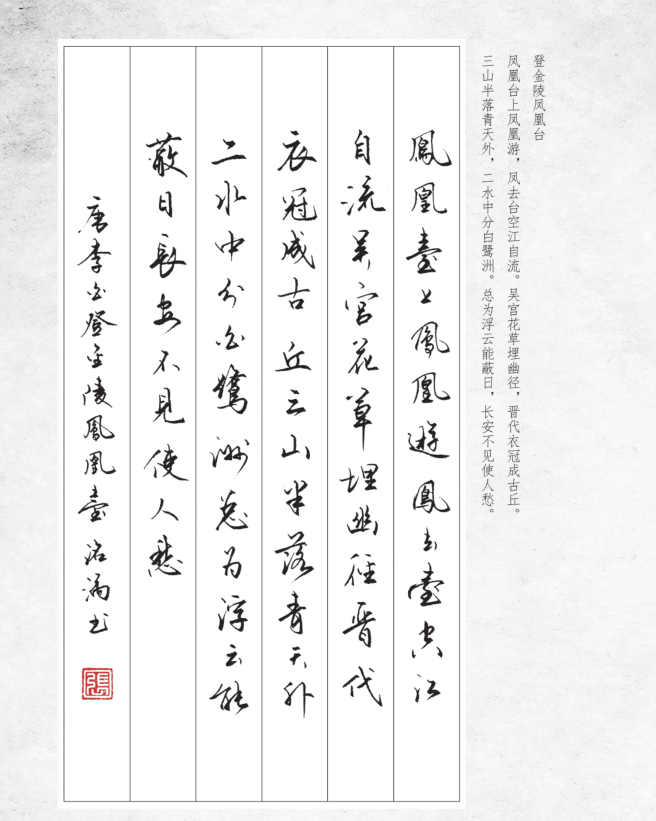 登金陵凤凰台
凤凰台上凤凰游，凤去台空江自流。吴宫花草埋幽径，晋代衣冠成古丘。
三山半落青天外，二水中分白鹭洲。总为浮云能蔽日，长安不见使人愁。
鳳凰臺上鳳凰遊鳳去臺空江
自流吴宫花草埋幽徑晋代
衣冠成古丘三山半落青天外
二水中分白鷺洲总为浮云能
蔽日長安不見使人愁
唐李白登金陵鳳凰臺 书
張